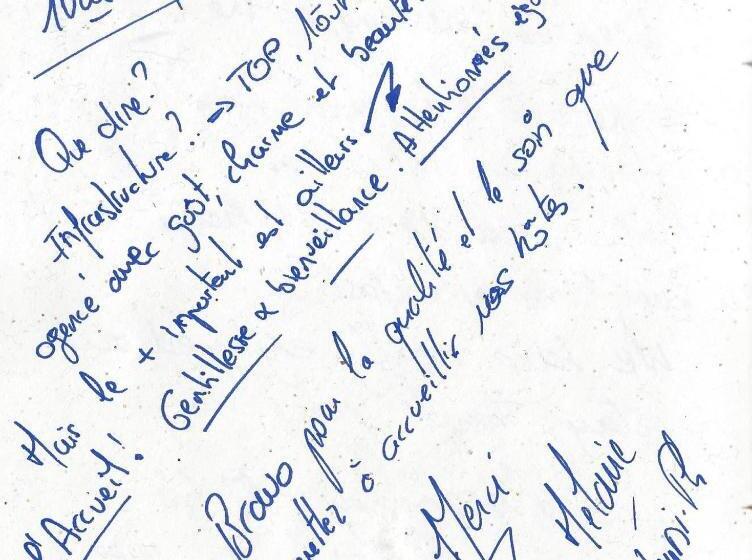 Que dire?
Infrastructure? .. → TOP, tout
agencé avec goût, charme et beauté
Mais le + important est ailleurs
l'Accueil! Gentillesse & bienveillance. Attentionnées
Bravo pour la qualité et le soin que
mettez à accueillir vos hôtes.
Merci
Mélanie